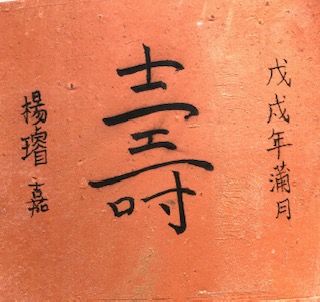 戊戌年蒲月
壽
楊璿嘉